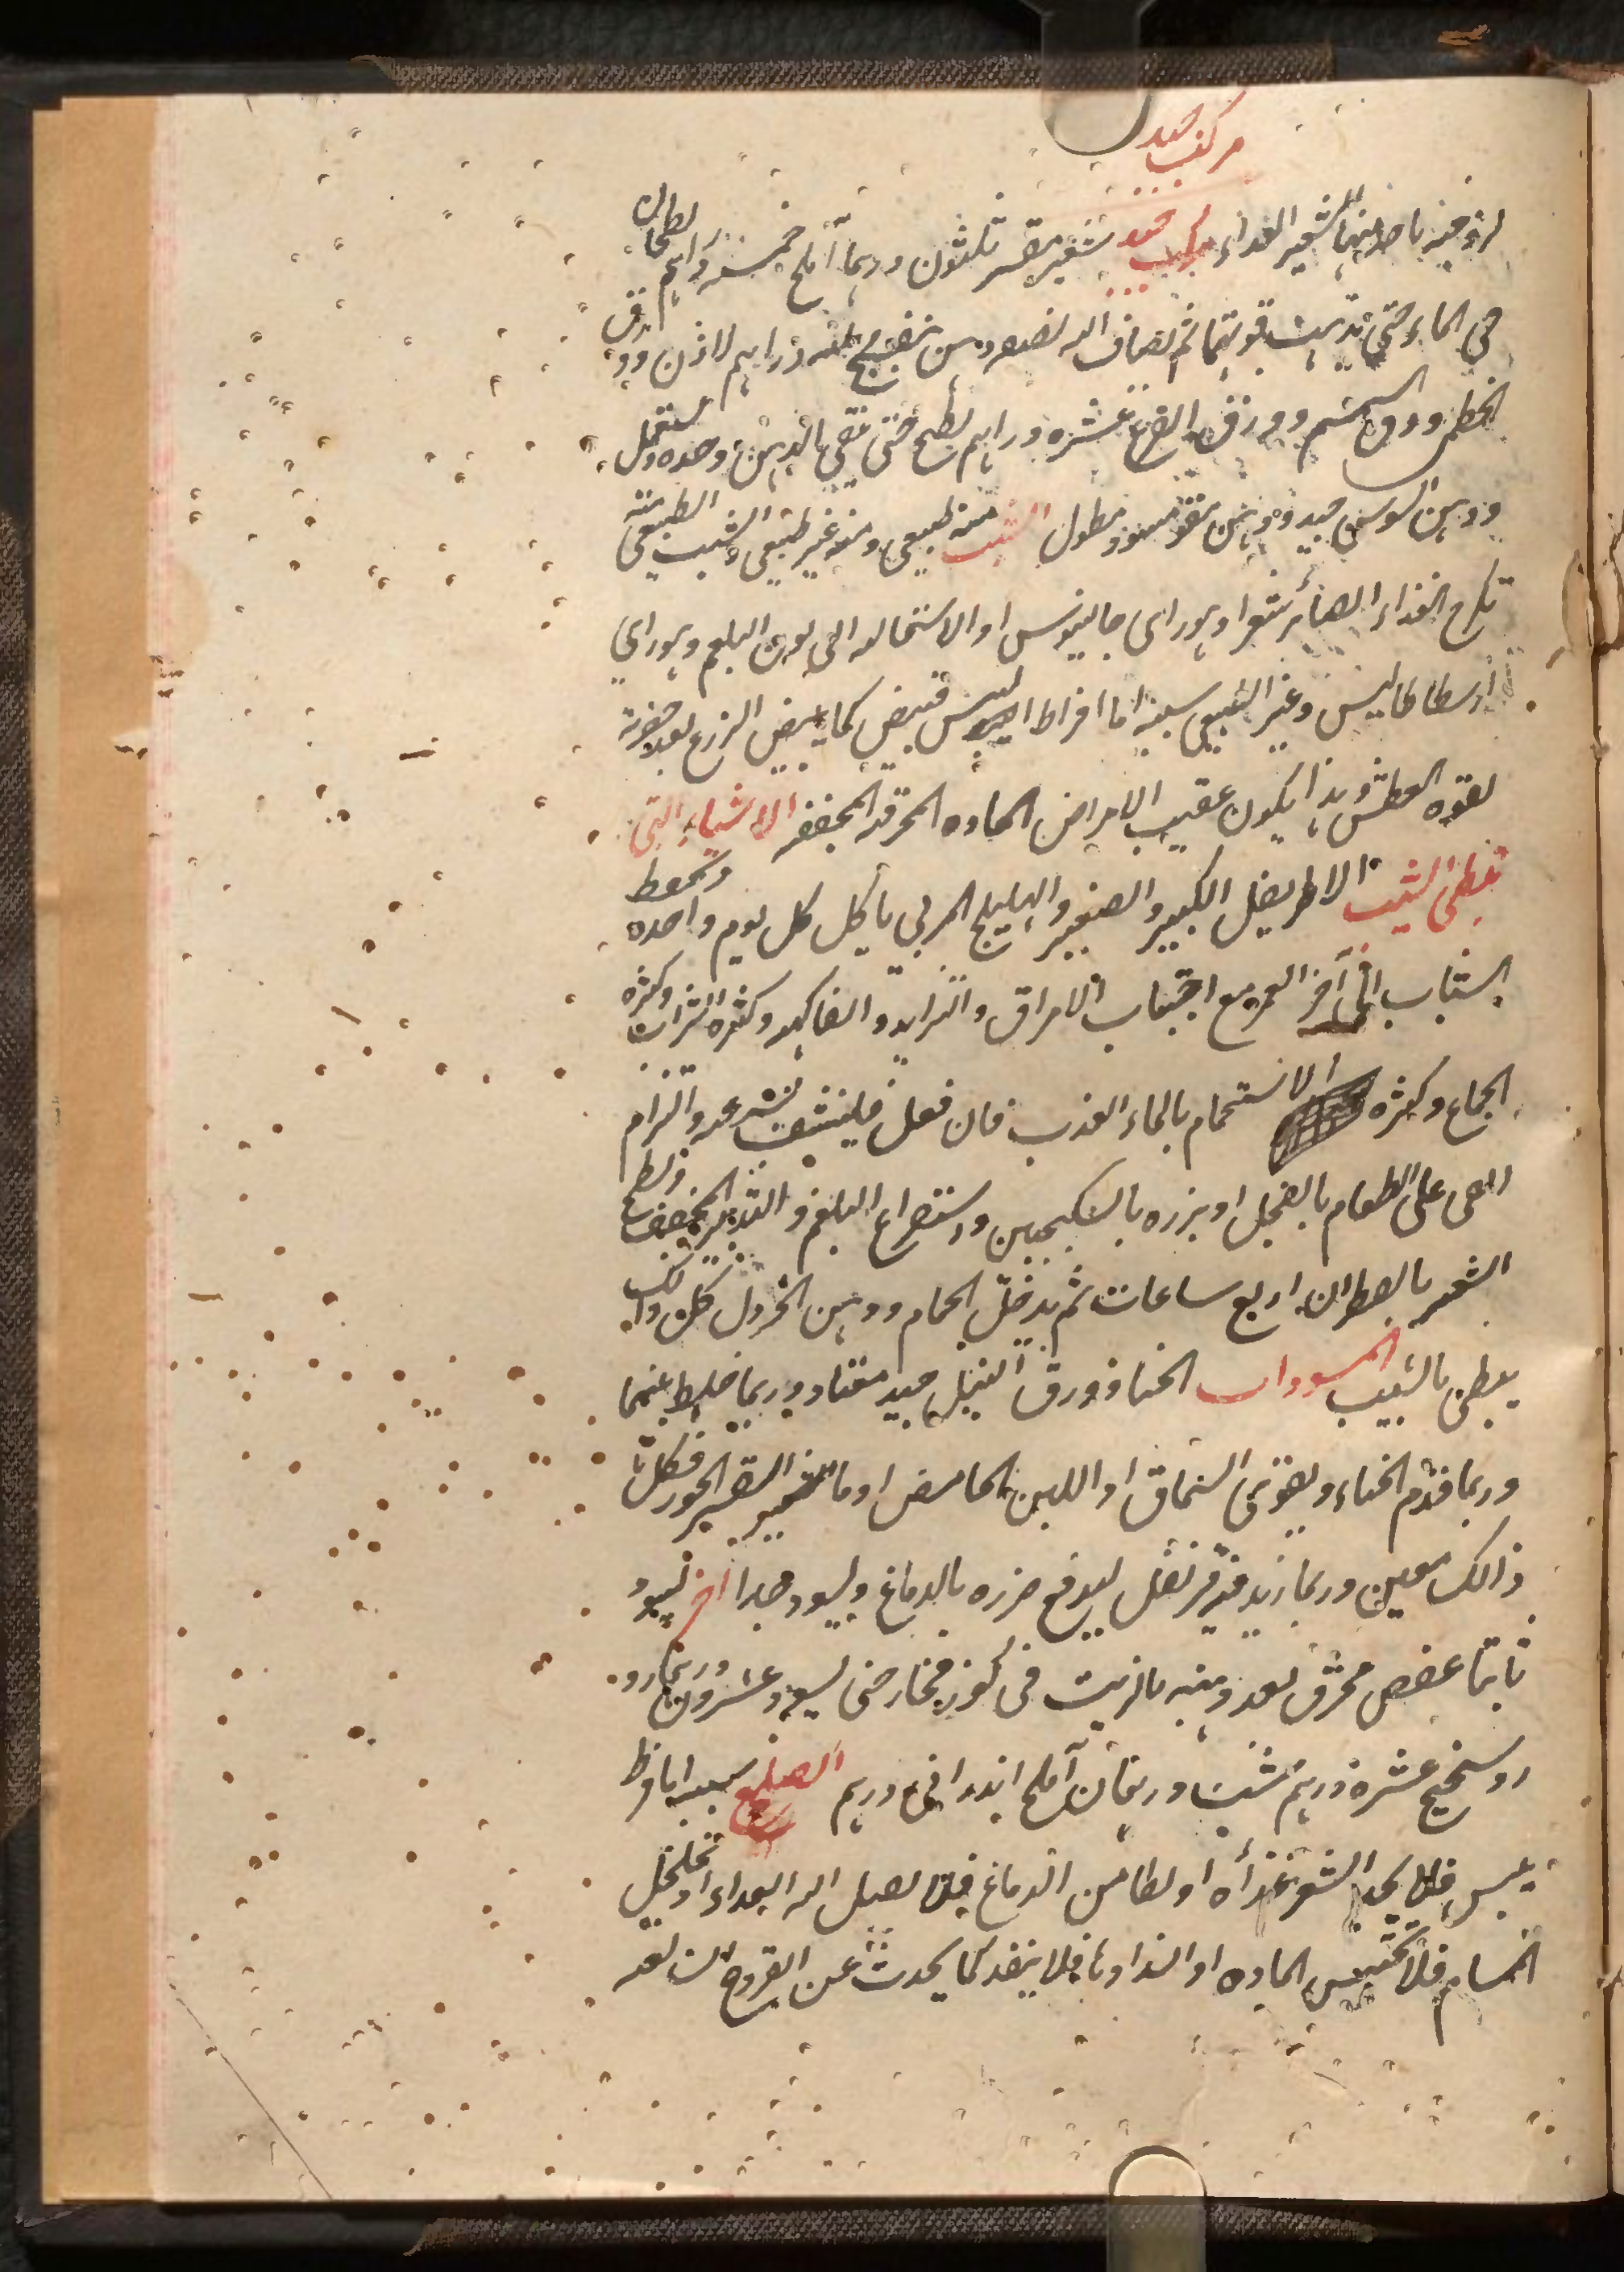 مركب جيد
لزوجته باصلاحها للشعير الغذاء مركب جيد شعير مقشر ثلثون درهما املج خمسة دراهم يطبخان
في الماء حتى تذهب قوتهما ثم يضاف اليه نصفه دهن بنفسج ثلثه دراهم لاذن وورق
الخطمى وورق السمسم وورق القرع عشره دراهم يطبخ حتى يبقى الدهن وحده ويستعمل
ودهن السوسن جيد ودهن مقو مسود مطول الشيب منه طبيعى ومنه غير طبيعى والشيب الطبيعى سببه
تكرج الغذاء الصائر شعرا وهو راى جالينوس او الاستحاله الى لون البلغم وهو راي
ارسطاطاليس وغير الطبيعى سببه اما افراط اليبس فتبيض كما يبيض الزرع بعد خضرته
لقوه العطش وهذا يكون عقيب الامراض الحاده المحرقه المجففه الاشياء التى
تبطى الشيب الاطريفل الكبير والصغير والهليلج المربى ياكل كل يوم واحده وتحفظ
الشباب الى آخر العمر مع اجتناب الامراق والثرايد والفاكهه وكثره الشراب وكثره
الجماع وكثره الاستحمام بالماء العذب فان فعل فلينشف بسرعه والزام
القى على الطعام بالفجل او بزره بالسكنجبين واستفراغ البلغم والتدبير المجفف ولطخ
الشعر بالقطران اربع ساعات ثم يدخل الحمام ودهن الخردل كل ذلك
يبطى بالشيب المسودات الحنا وورق النيل جيد معتاد وربما خلط بينهما
وربما قدم الحناء ويقوى السماق او اللبن الحامض او ما قشر الجوز فكل
ذالك معين وربما زيد فيه قرنفل ليدفع ضرره بالدماغ ويسود جدا اخر يسود
ثابتا عفص محرق بعد دهنه بالزيت في كوز فخار حتى يسود عشرون درهما رو
روسختج عشرة دراهم شب درهمان املح اندرانى درهم الصلع سببه اما فرط
يبس فلا يجد الشعر غذاه او تطامن الدماغ فلا يصل اليه الغذاء او تخلخل
المسام فلا تحتبس الماده او انسدادها فلا ينفذ كما يحدث عن القروح